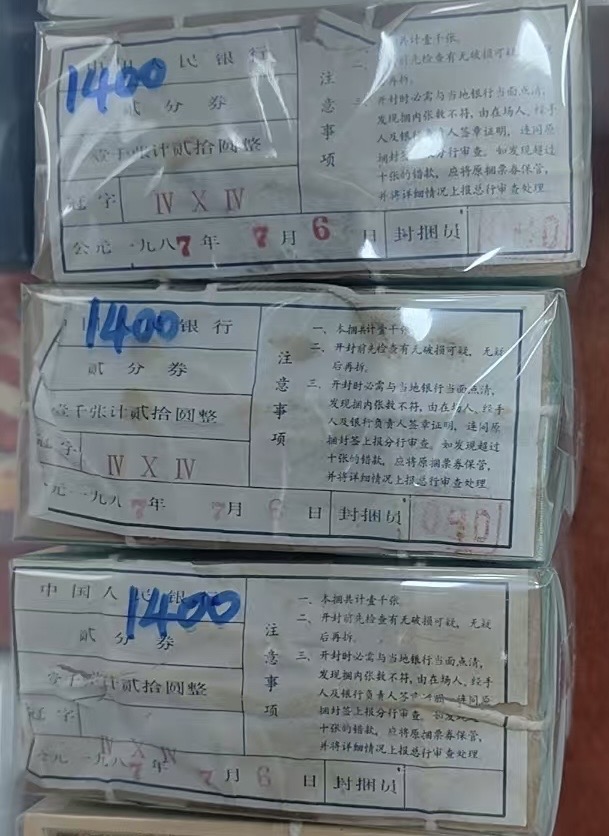 1400
民银行
贰分券
壹千张计贰拾圆整
冠字
Ⅳ Ⅹ Ⅳ
公元一九八7年 7月 6日 封捆员
注意事项
共计壹千张。
先检查有无破损可疑,
再拆。
开封时必需与当地银行当面点清,
发现捆内张数不符, 由在场人、经手
人及银行负责人签章证明, 连同原
捆封签上报分行审查。如发现超过
十张的错款, 应将原捆票券保管,
并将详细情况上报总行审查处理
1400
银行
贰分券
壹千张计贰拾圆整
冠字
Ⅳ Ⅹ Ⅳ
元一九八7年 7月 6日 封捆员
040
注意事项
一、本捆共计壹千张
二、开封前先检查有无破损可疑, 无疑
后再拆。
三、开封时必需与当地银行当面点清,
发现捆内张数不符, 由在场人、经手
人及银行负责人签章证明, 连同原
捆封签上报分行审查。如发现超过
十张的错款, 应将原捆票券保管,
并将详细情况上报总行审查处理
中国人民银
1400
贰分券
壹千张计贰拾圆整
冠字
Ⅳ Ⅹ Ⅳ
公元一九八7年 7月 6日 封捆员
注意事项
一、本捆共计壹千张
二、开封前先检查有无破损可疑, 无疑
后再拆。
三、开封时必需与当地银行当面点清,
发现捆内张数不符, 由在场人、经手
人及银行负责人签章证明, 连同原
捆封签上报分行审查。如发现超过
十张的错款, 应将原捆票券保管,
并将详细情况上报总行审查处理